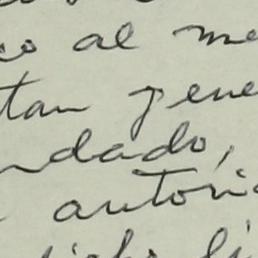 co al me
tan gene
ndado,
autori